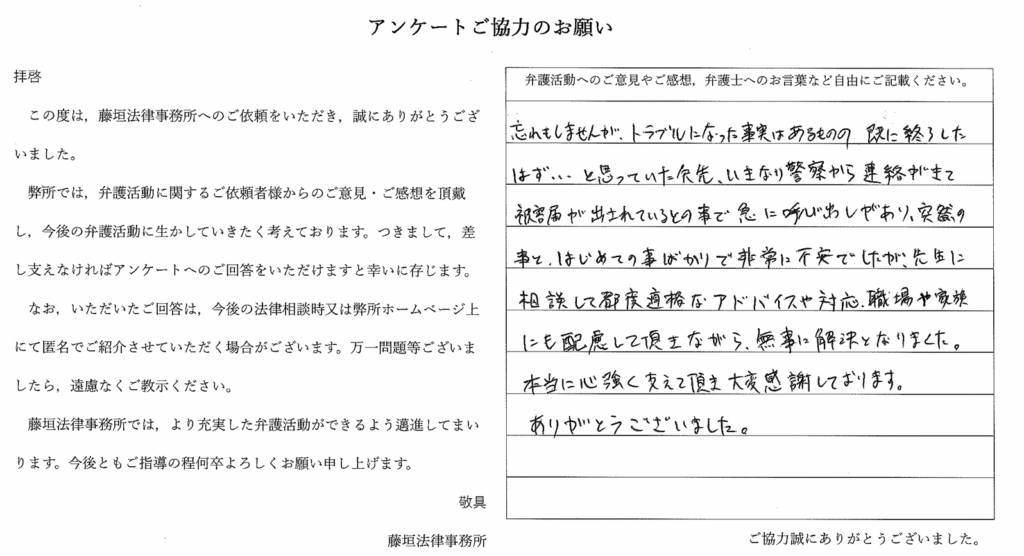 アンケートご協力のお願い
拝啓
この度は，藤垣法律事務所へのご依頼をいただき，誠にありがとうござ
いました。
弊所では，弁護活動に関するご依頼者様からのご意見・ご感想を頂戴
し，今後の弁護活動に生かしていきたく考えております。つきまして，差
し支えなければアンケートへのご回答をいただけますと幸いに存じます。
なお，いただいたご回答は，今後の法律相談時又は弊所ホームページ上
にて匿名でご紹介させていただく場合がございます。万一問題等ございま
したら，遠慮なくご教示ください。
藤垣法律事務所では，より充実した弁護活動ができるよう邁進してまい
ります。今後ともご指導の程何卒よろしくお願い申し上げます。
敬具
藤垣法律事務所
弁護活動へのご意見やご感想，弁護士へのお言葉など自由にご記載ください。
忘れもしませんが、トラブルになった事実はあるものの 既に終了した
はず・・・と思っていた矢先、いきなり警察から連絡がきて
被害届が出されているとの事で急に呼び出しがあり、突然の
事と、はじめての事ばかりで非常に不安でしたが、先生に
相談して都度適格なアドバイスや対応、職場や家族
にも配慮して頂きながら、無事に解決となりました。
本当に心強く支えて頂き大変感謝しております。
ありがとうございました。
ご協力誠にありがとうございました。